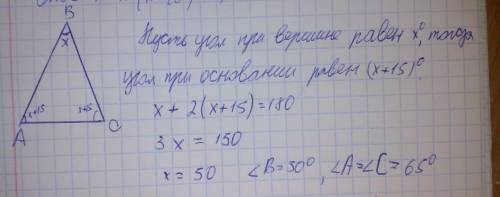 B
x
x+15
x+15
A
C
Пусть угол при вершине равен x°, тогда
угол при основании равен (x+15)°
x + 2(x+15)=180
3x = 150
x = 50 ∠B=50°, ∠A=∠C=65°